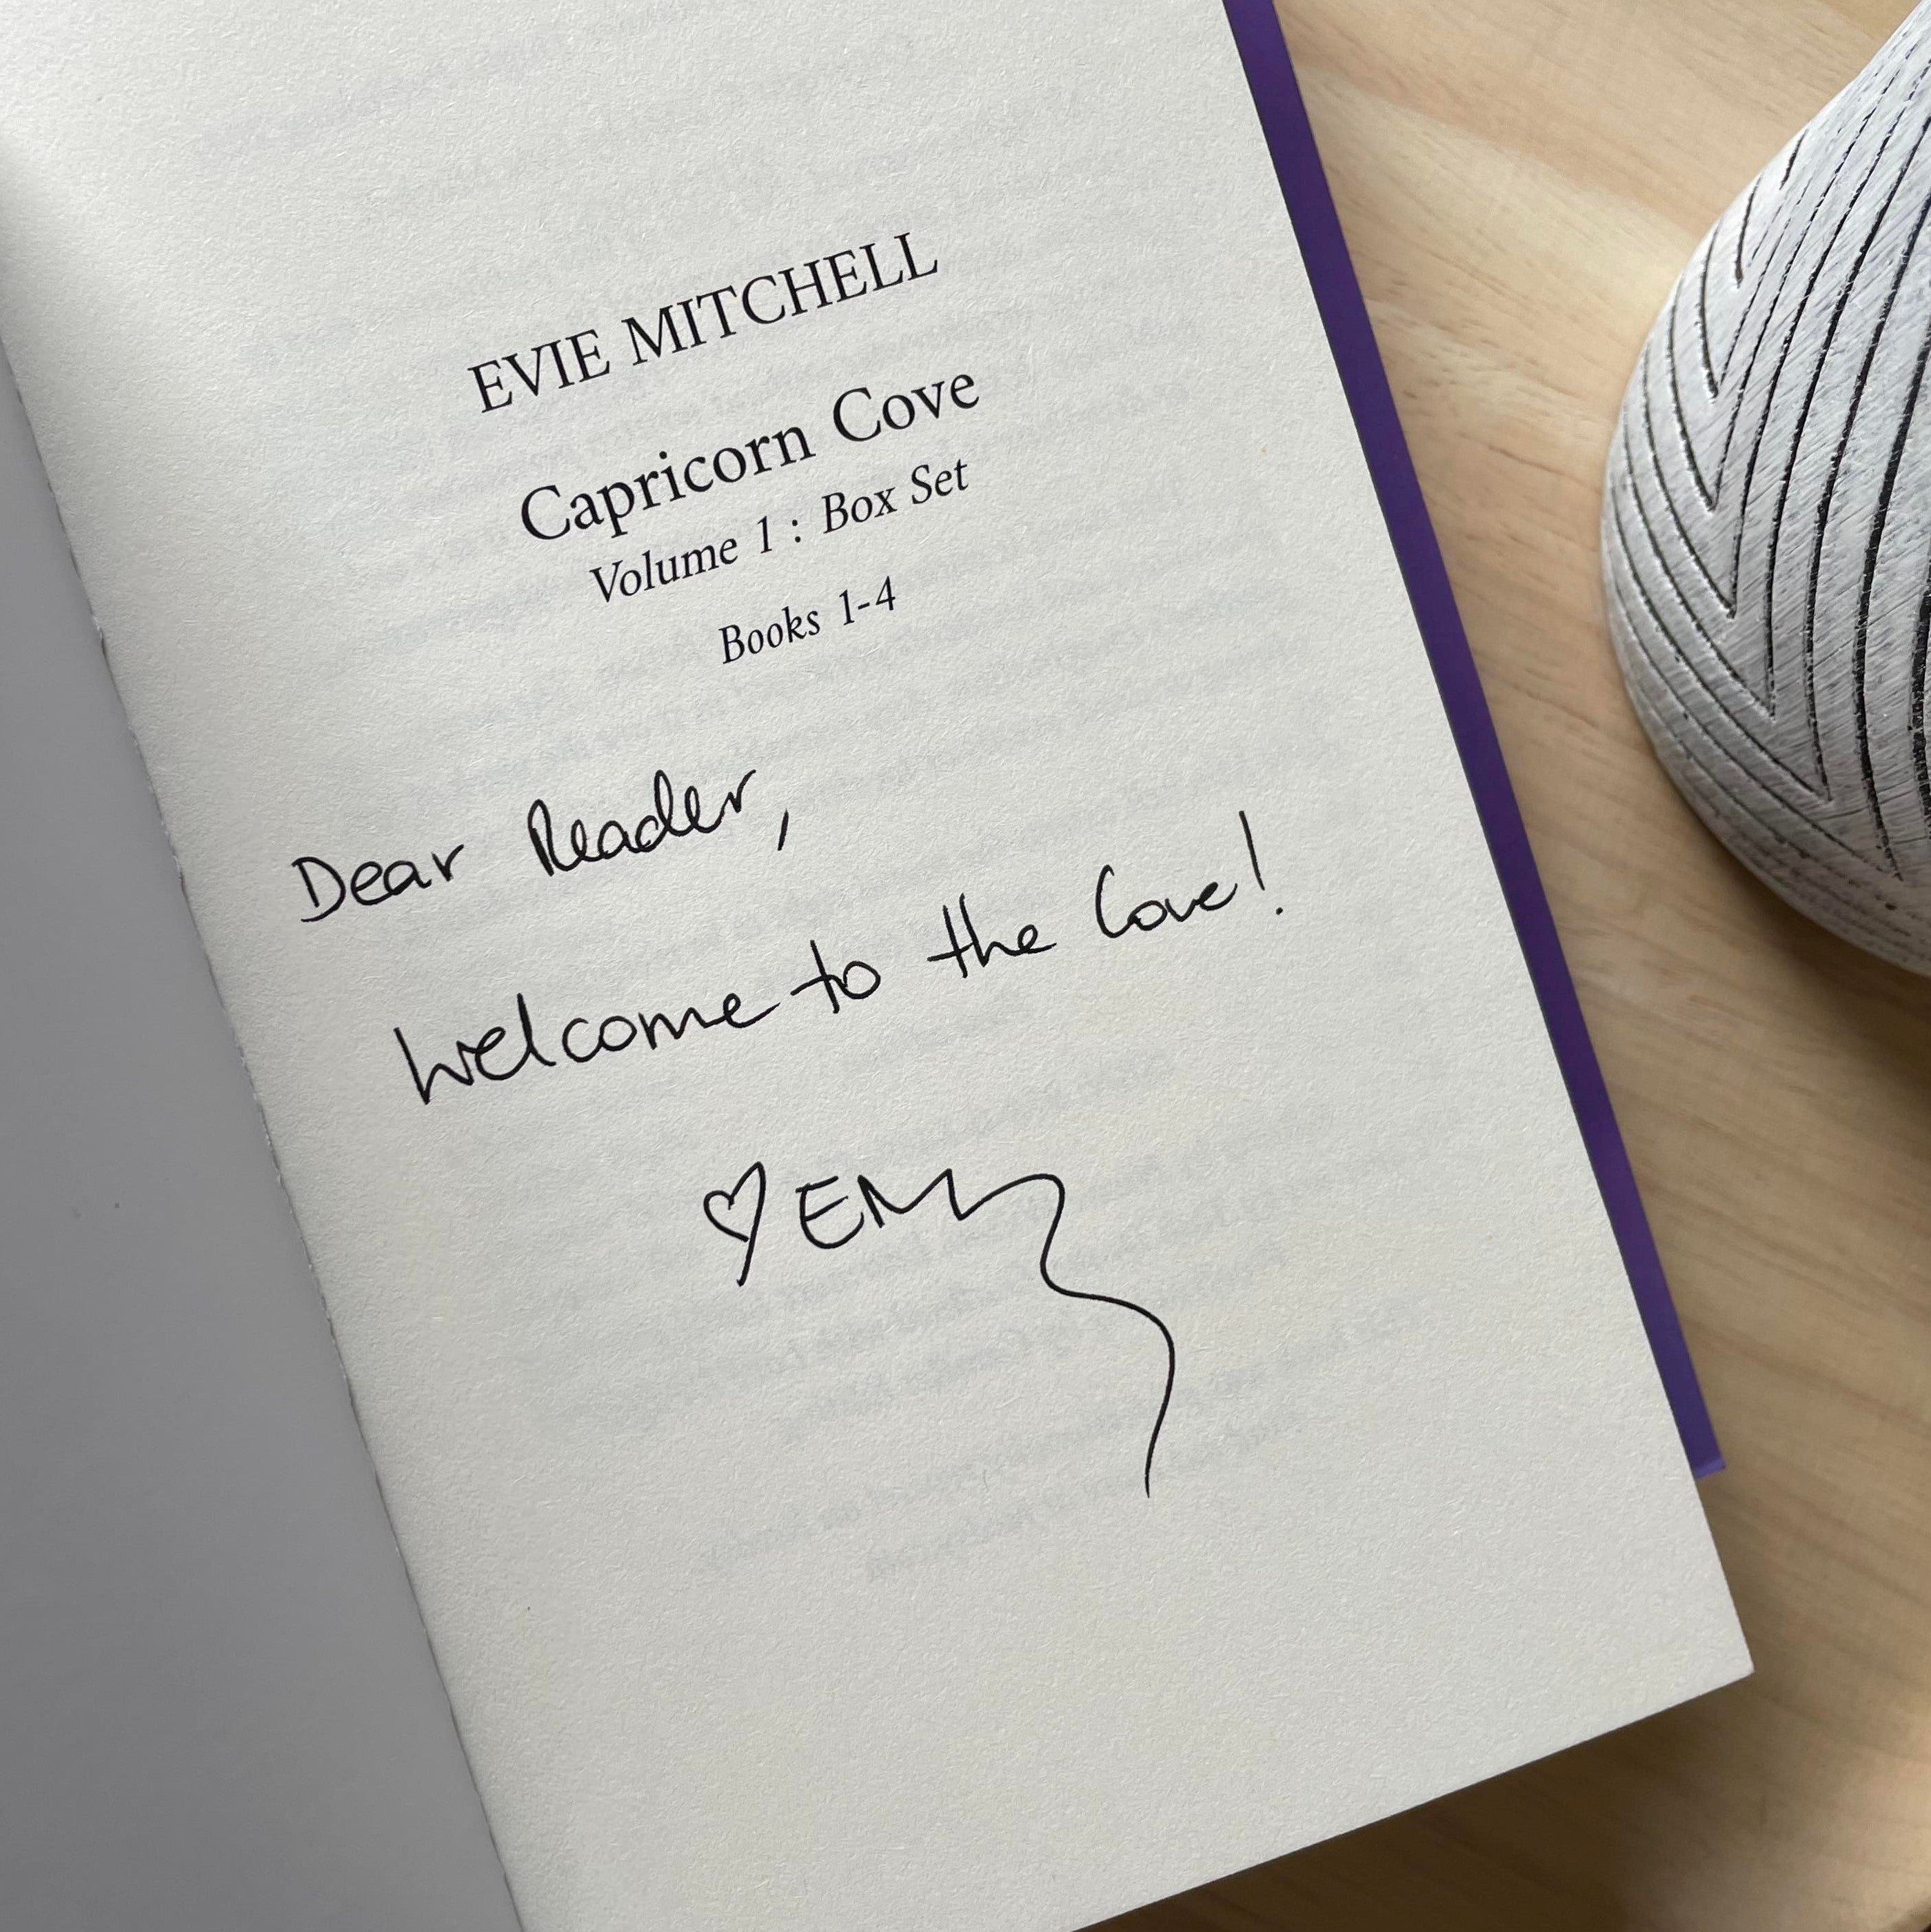 EVIE MITCHELL
Capricorn Cove
Volume 1 : Box Set
Books 1-4
Dear Reader,
Welcome to the Cove!
♡ EM